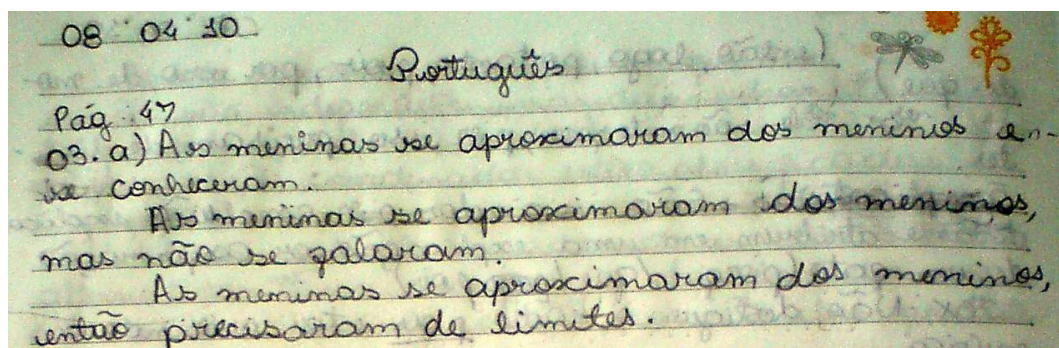 08 04 10
Português
Pág. 47
03. a) As meninas se aproximaram dos meninos e
se conheceram.
As meninas se aproximaram dos meninos,
mas não se falaram.
As meninas se aproximaram dos meninos,
então precisaram de limites.